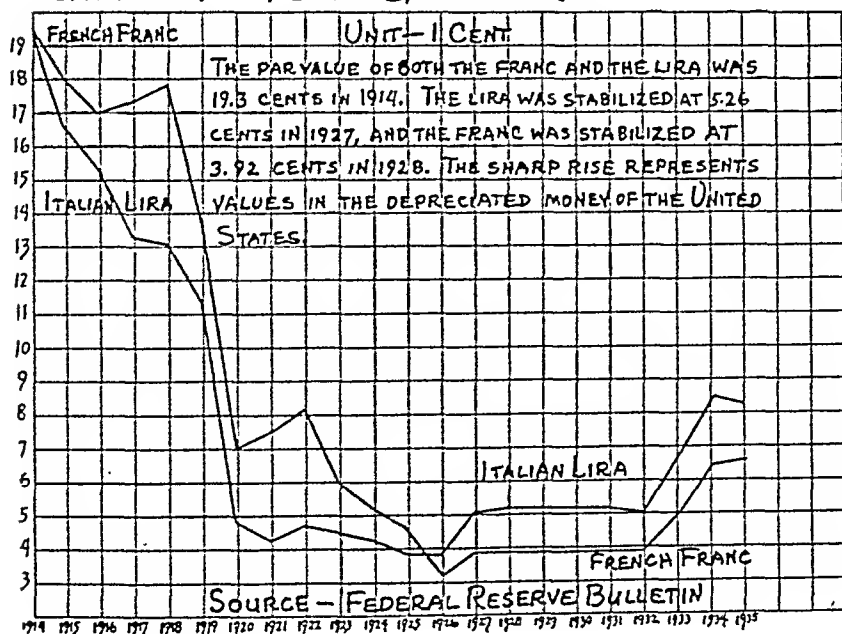 UNIT—1 CENT
FRENCH FRANC
THE PAR VALUE OF BOTH THE FRANC AND THE LIRA WAS
19.3 CENTS IN 1914. THE LIRA WAS STABILIZED AT 5.26
CENTS IN 1927, AND THE FRANC WAS STABILIZED AT
3.92 CENTS IN 1928. THE SHARP RISE REPRESENTS
ITALIAN LIRA
VALUES IN THE DEPRECIATED MONEY OF THE UNITED
STATES
19
18
17
16
15
14
13
12
11
10
9
8
7
6
5
4
3
ITALIAN LIRA
FRENCH FRANC
SOURCE – FEDERAL RESERVE BULLETIN
1914 1915 1916 1917 1918 1919 1920 1921 1922 1923 1924 1925 1926 1927 1928 1929 1930 1931 1932 1933 1934 1935